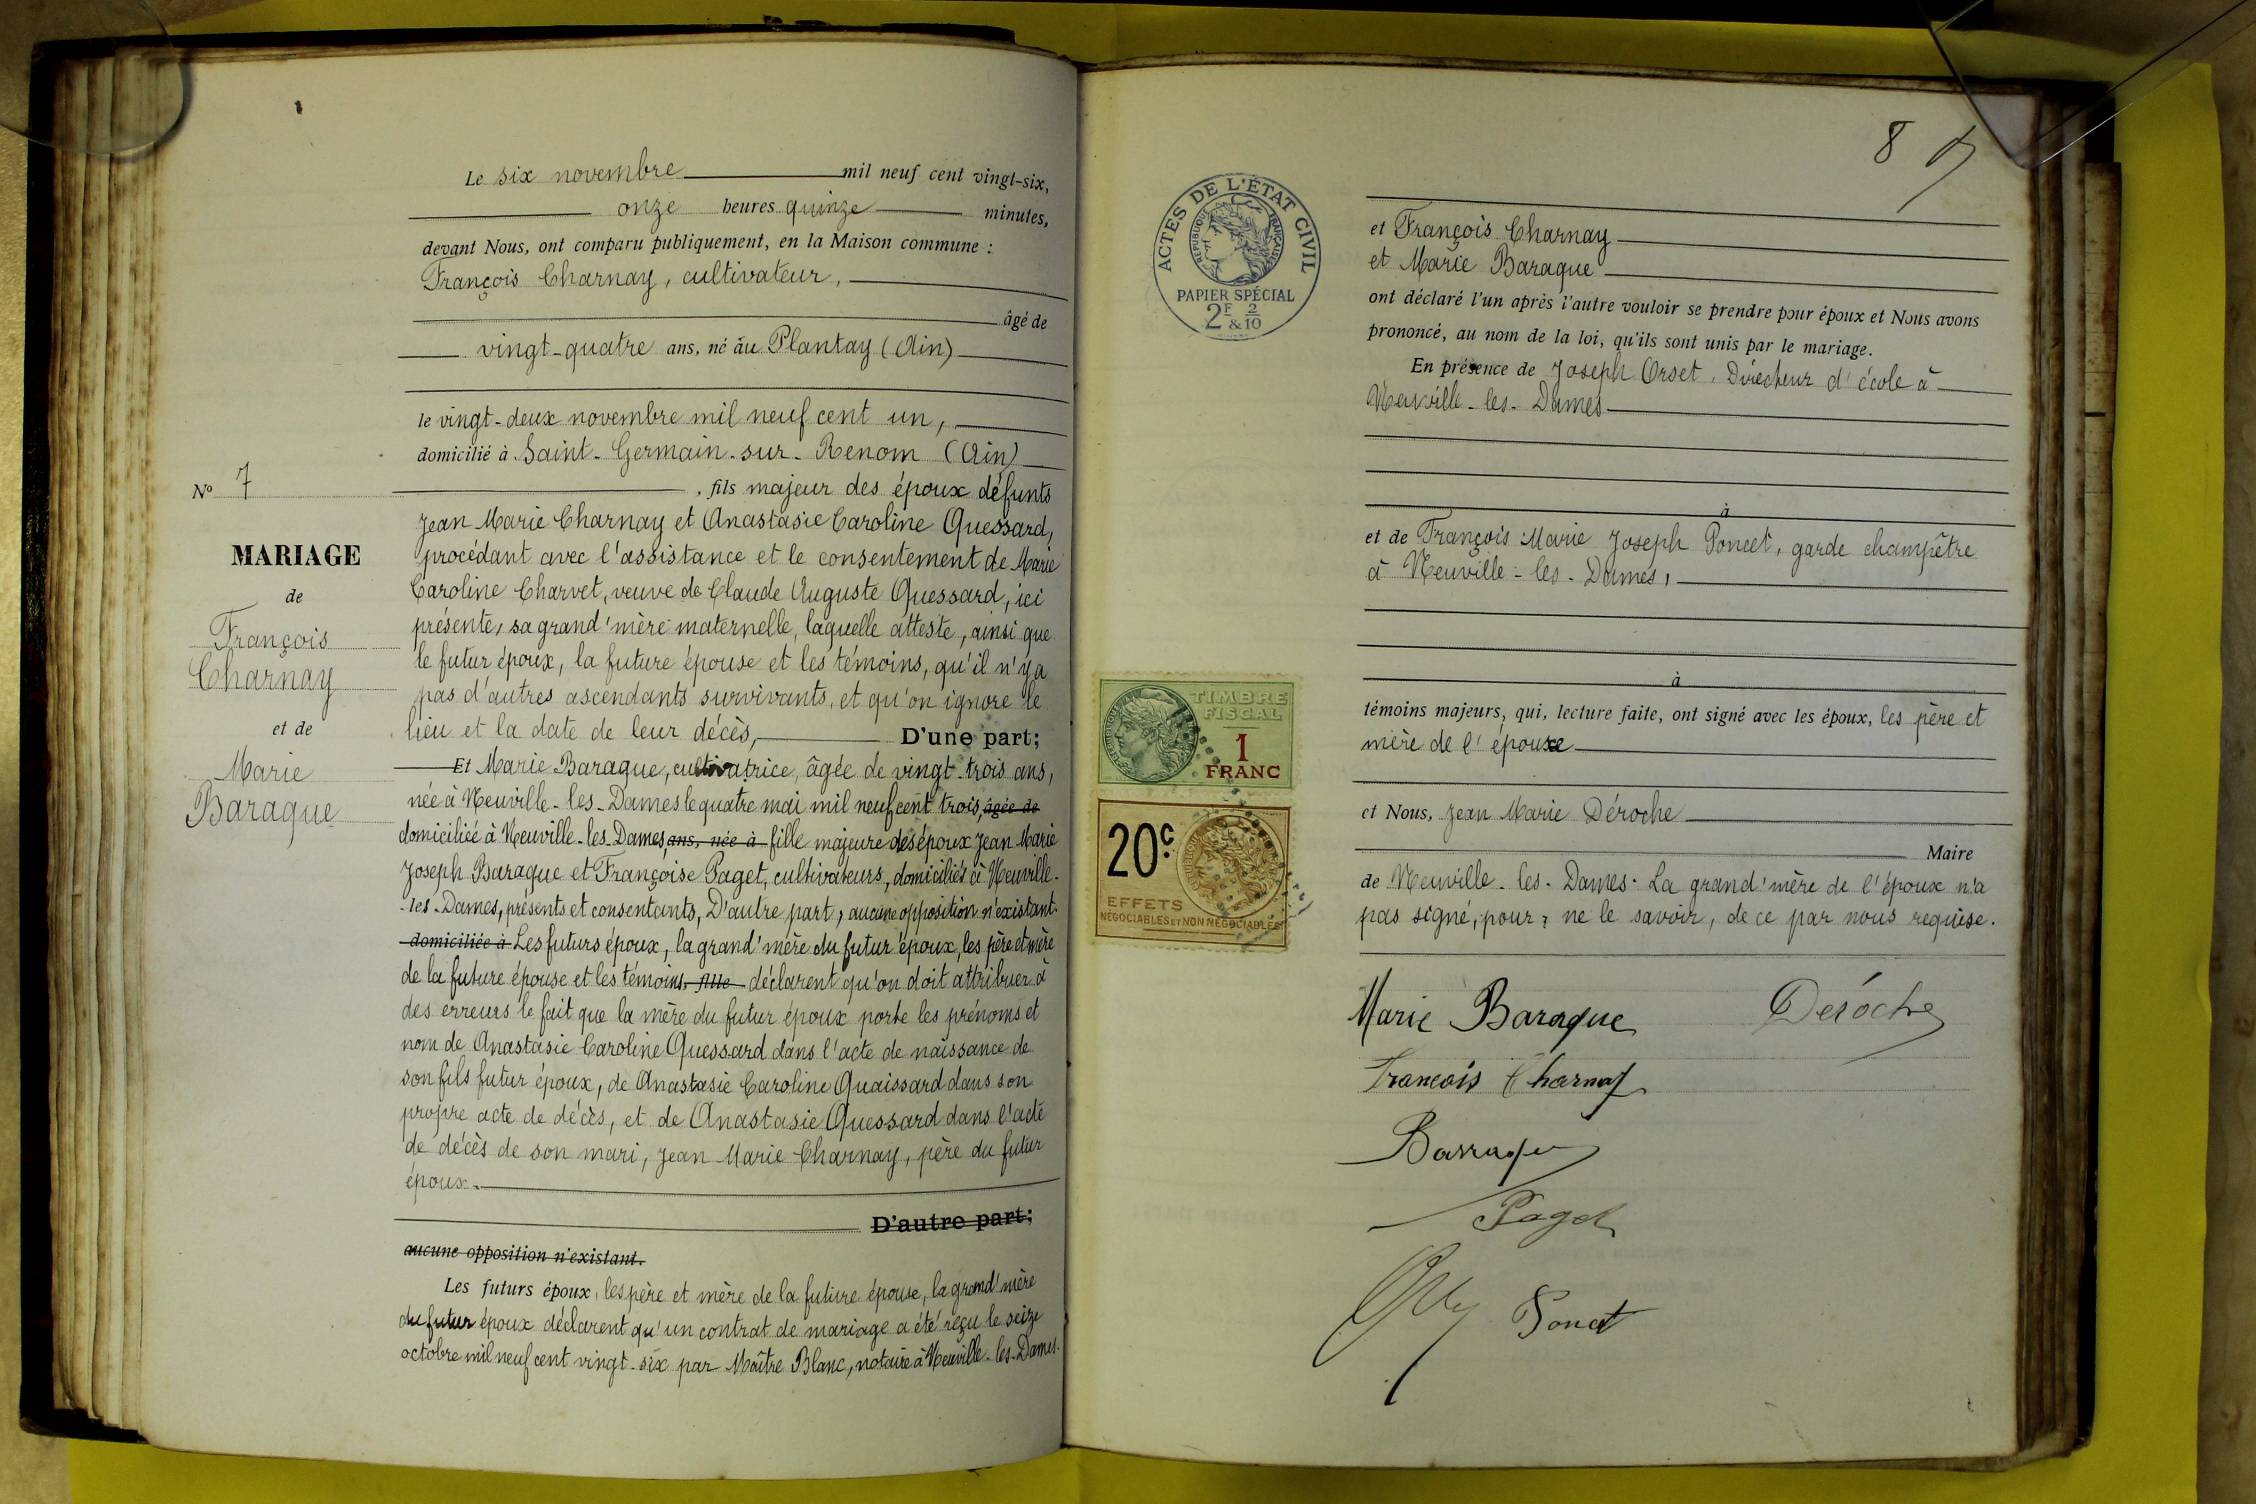 Le six novembre mil neuf cent vingt-six,
onze heures quinze minutes,
devant Nous, ont comparu publiquement, en la Maison commune :
François Charnay, cultivateur,
âgé de
vingt-quatre ans, né au Plantay (Ain)
le vingt-deux novembre mil neuf cent un,
domicilié à Saint-Germain-sur-Renom (Ain)
, fils majeur des époux défunts
Jean Marie Charnay et Anastasie Caroline Quessard,
procédant avec l'assistance et le consentement de Marie
Caroline Charvet, veuve de Claude Auguste Quessard, ici
présente, sa grand'mère maternelle, laquelle atteste, ainsi que
le futur époux, la future épouse et les témoins, qu'il n'y a
pas d'autres ascendants survivants, et qu'on ignore le
lieu et la date de leur décès, D'une part;
Nº 7
MARIAGE
de
François
Charnay
et de
Marie
Baraque
Et Marie Baraque, cultivatrice, âgée de vingt-trois ans,
née à Neuville-les-Dames le quatre mai mil neuf cent trois, âgée de
domiciliée à Neuville-les-Dames, ans, née à fille majeure des époux Jean Marie
Joseph Baraque et Françoise Paget, cultivateurs, domiciliés à Neuville-
-les-Dames, présents et consentants, D'autre part, aucune opposition n'existant.
domiciliée à Les futurs époux, la grand'mère du futur époux, les père et mère
de la future épouse et les témoins, fille déclarent qu'on doit attribuer à
des erreurs le fait que la mère du futur époux porte les prénoms et
nom de Anastasie Caroline Quessard dans l'acte de naissance de
son fils futur époux, de Anastasie Caroline Quaissard dans son
propre acte de décès, et de Anastasie Quessard dans l'acte
de décès de son mari, Jean Marie Charnay, père du futur
époux.
D'autre part;
aucune opposition n'existant.
Les futurs époux, les père et mère de la future épouse, la grand'mère
du futur époux déclarent qu'un contrat de mariage a été reçu le seize
octobre mil neuf cent vingt-six par Maître Blanc, notaire à Neuville-les-Dames.
8
ACTES DE L'ÉTAT CIVIL
RÉPUBLIQUE FRANÇAISE
PAPIER SPÉCIAL
2F & 2/10
et François Charnay
et Marie Baraque
ont déclaré l'un après l'autre vouloir se prendre pour époux et Nous avons
prononcé, au nom de la loi, qu'ils sont unis par le mariage.
En présence de Joseph Orset, Directeur d'école à
Neuville-les-Dames
à
et de François Marie Joseph Poncet, garde champêtre
à Neuville-les-Dames,
à
TIMBRE
FISCAL
1
FRANC
20c
EFFETS
NÉGOCIABLES ET NON NÉGOCIABLES
témoins majeurs, qui, lecture faite, ont signé avec les époux, les père et
mère de l'épouse
et Nous, Jean Marie Déroche
Maire
de Neuville-les-Dames. La grand'mère de l'époux n'a
pas signé, pour, ne le savoir, de ce par nous requise.
Marie Baraque Deroche
François Charnay
Barraque
Paget
Poncet